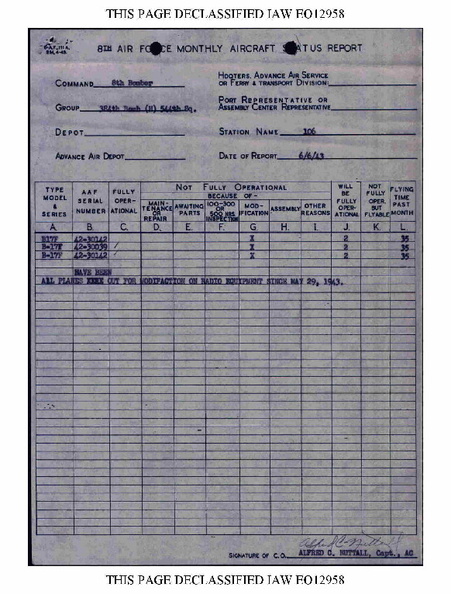 THIS PAGE DECLASSIFIED IAW EO12958
8TH AIR FORCE MONTHLY AIRCRAFT STATUS REPORT
COMMAND 8th Bomber
HOQTERS, ADVANCE AIR SERVICE
OR FERRY & TRANSPORT DIVISION
GROUP 384th Bomb (H) 544th Sq.
PORT REPRESENTATIVE OR
ASSEMBLY CENTER REPRESENTATIVE
DEPOT
STATION NAME 106
ADVANCE AIR DEPOT
DATE OF REPORT 6/6/43
TYPE MODEL & SERIES
AAF SERIAL NUMBER
FULLY OPER-ATIONAL
NOT FULLY OPERATIONAL
BECAUSE OF-
MAIN-TENANCE OR REPAIR
AWAITING PARTS
100-300 OR 500 HRS INSPECTION
MOD-IFICATION
ASSEMBLY
OTHER REASONS
WILL BE FULLY OPER-ATIONAL
NOT FULLY OPER. BUT FLYABLE
FLYING TIME PAST MONTH
A. B. C. D. E. F. G. H. I. J. K. L.
B17F 42-30142 X 2 35
B-17F 42-30039 / X 2 35
B-17F 42-30142 / X 2 35
HAVE BEEN
ALL PLANES WERE OUT FOR MODIFACTION ON RADIO EQUIPMENT SINCE MAY 29, 1943.
SIGNATURE OF C.O. ALFRED C. NUTTALL, Capt., AC
THIS PAGE DECLASSIFIED IAW EO12958